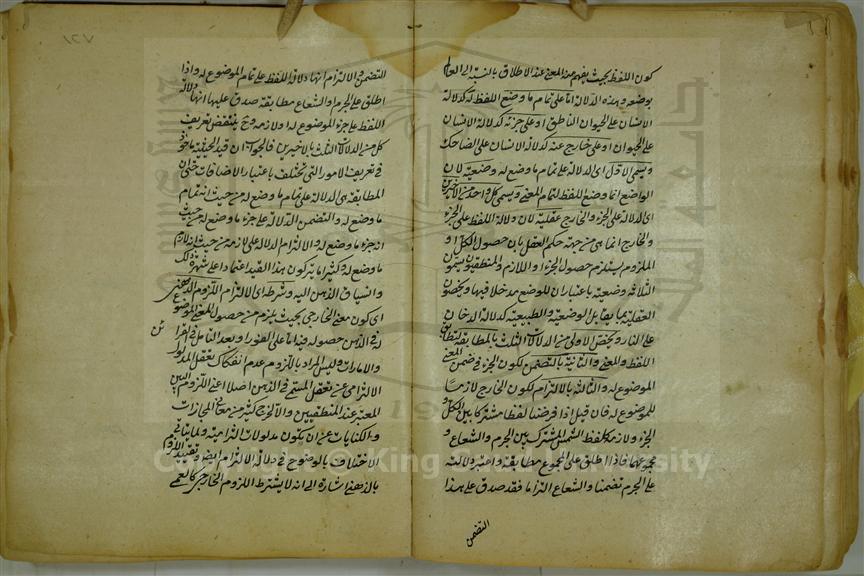 كون اللفظ بحيث يفهم منه المعنى عند الاطلاق بالنسبة الى العالم
بوضعه وهذه الدلالة اما على تمام ما وضع اللفظ له كدلالة
الانسان على الحيوان الناطق او على جزئه كدلالة الانسان
على الحيوان او على خارج عنه كدلالة الانسان على الضاحك
ويسمى الاول اى الدلالة على تمام ما وضع له وضعية لان
الواضع انما وضع اللفظ لتمام المعنى ويسمى كل واحد من الاخيرين
اى الدلالة على الجزء والخارج عقلية لان دلالة اللفظ على الجزء
والخارج انما هى من جهة حكم العقل بان حصول الكل او
الملزوم يستلزم حصول الجزء او اللازم والمنطقيون يسمون
الثلاثة وضعية باعتبار ان للوضع مدخلا فيها ويخصون
العقلية بما يقابل الوضعية والطبيعية كدلالة الدخان
على النار ويختص الاولى من الدلالات الثلث بالمطابقة لتطابق
اللفظ والمعنى والثانية بالتضمن لكون الجزء فى ضمن المعنى
الموضوع له والثالثة بالالتزام لكون الخارج لازما
للموضوع له فان قيل اذا فرضنا لفظا مشتركا بين الكل و
الجزء ولازمه كلفظ الشمس المشترك بين الجرم والشعاع و
مجموعهما فاذا اطلق على المجموع مطابقة واعتبر دلالته
على الجرم تضمنا والشعاع التزاما فقد صدق على هذا
التضمن
١٢٧
التضمن والالتزام انها دلالة اللفظ على تمام الموضوع له واذا
اطلق على الجرم والشعاع مطابقة صدق عليها انها دلالة
اللفظ على جزء الموضوع له او لازمه وح ينتقض تعريف
كل من الدلالات الثلث بالاخريين فالجواب ان قيد الحيثية ماخوذ
فى تعريف الامور التى تختلف باعتبار الاضافات حتى ان
المطابقة هى الدلالة على تمام ما وضع له من حيث انه تمام
ما وضع له والتضمن الدلالة على جزء ما وضع له من حيث
انه جزء ما وضع له والالتزام الدلالة على لازمه من حيث انه لازم
ما وضع له وكثيرا ما يتركون هذا القيد اعتمادا على شهرة ذلك
وانسياق الذهن اليه وشرطه اى الالتزام اللزوم الذهنى
اى كون المعنى الخارجى بحيث يلزم من حصول المعنى الموضوع
له فى الذهن حصوله فيه اما على الفور او بعد التامل فى القرائن
والامارات وليس المراد باللزوم عدم انفكاك تعقل المدلول
الالتزامى عن تعقل المسمى فى الذهن اصلا اعنى اللزوم البين
المعتبر عند المنطقيين والا لخرج كثير من معانى المجازات
والكنايات عن ان يكون مدلولات التزامية ولما يتأتى
الاختلاف بالوضوح فى دلالة الالتزام ايضا وتقييد اللزوم
بالذهنى اشارة الى انه لا يشترط اللزوم الخارجى كالعمى
Copyright © King Saud University